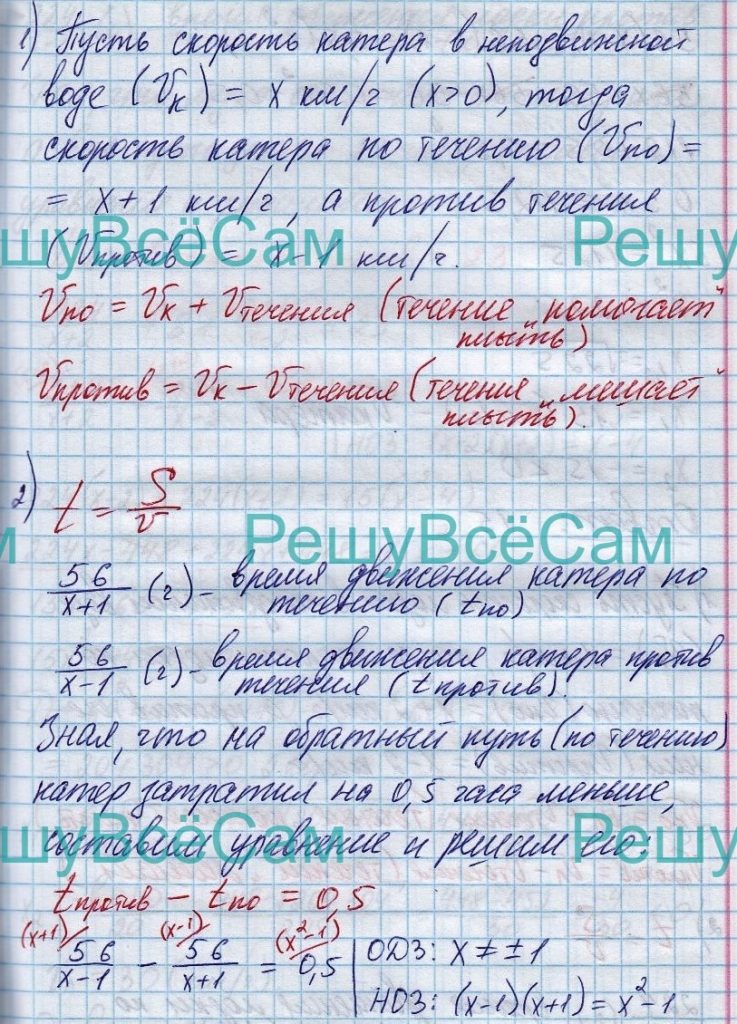 1) Пусть скорость катера в неподвижной
воде (Vк) = x км/ч (x>0), тогда
скорость катера по течению (Vпо) =
= x+1 км/ч, а против течения
(Vпротив) = x-1 км/ч.
РешуВсёСам РешуВсёСам
Vпо = Vк + Vтечения (течение „помогает"
плыть)
Vпротив = Vк - Vтечения (течения „мешает"
плыть).
2) t = S/v
РешуВсёСам
56/(x+1) (ч) - время движения катера по
течению (tпо)
56/(x-1) (ч) - время движения катера против
течения (tпротив).
Зная, что на обратный путь (по течению)
катер затратил на 0,5 часа меньше,
составим уравнение и решим его:
РешуВсёСам РешуВсёСам
tпротив - tпо = 0,5
(x+1) (x-1) (x²-1)
56/(x-1) - 56/(x+1) = 0,5 | ОДЗ: x ≠ ±1
НОЗ: (x-1)(x+1) = x²-1